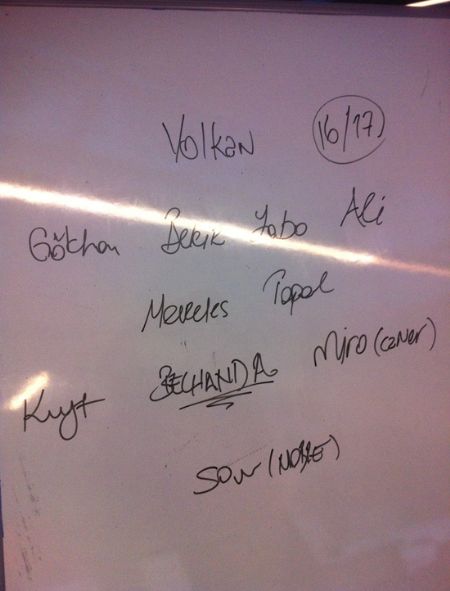 Volkan 16/17
Gökhan Bekir Yobo Ali
Mereles Topal
Kuyt BELHANDA Miro (caner)
Sow